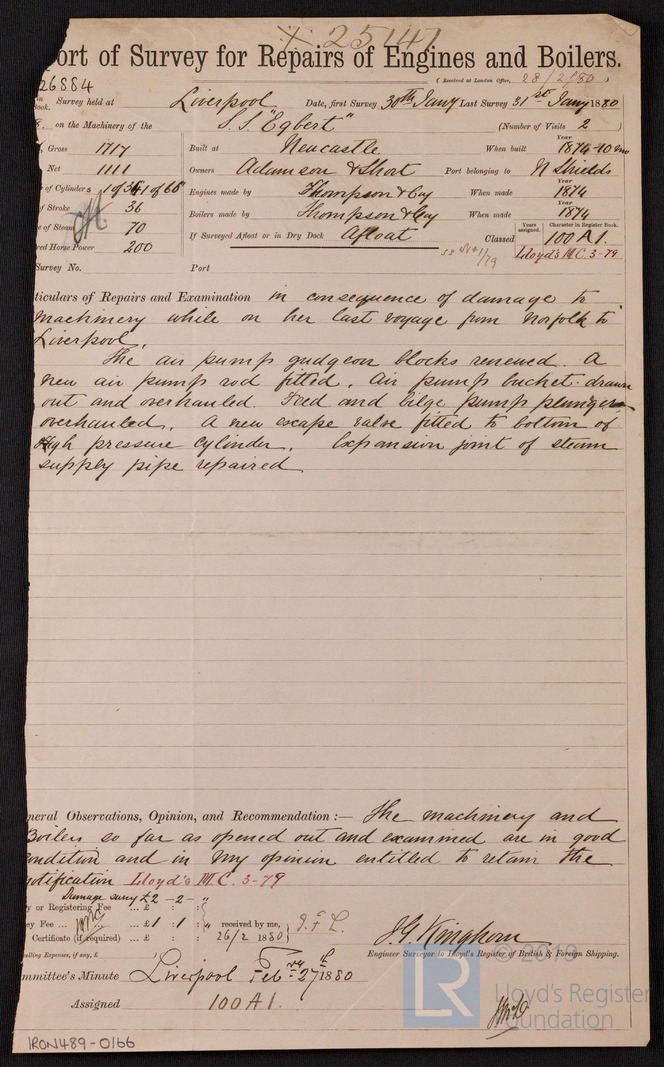 X 25147
ort of Survey for Repairs of Engines and Boilers.
26884
(Received at London Office, 28/2/80)
Survey held at Liverpool Date, first Survey 30th Jany Last Survey 31st Jany 1880
on the Machinery of the S.S. "Egbert" (Number of Visits 2)
Gross 1717 Built at Newcastle When built Year 1874-10 mo
Net 1111 Owners Adamson & Short Port belonging to N Shields
of Cylinders 1 of 36 1 of 66" Engines made by Thompson & Coy When made Year 1874
of Stroke 36 Boilers made by Thompson & Coy When made Year 1874
e of Steam 70 If Surveyed Afloat or in Dry Dock Afloat Classed Years assigned. Character in Register Book. 100 A1.
red Horse Power 200 Lloyd's M.C. 3-79
Survey No. Port
ticulars of Repairs and Examination in consequence of damage to
machinery while on her last voyage from Norfolk to
Liverpool.
The air pump gudgeon blocks renewed. A
new air pump rod fitted. Air pump bucket drawn
out and overhauled. Feed and bilge pump plungers
overhauled. A new escape valve fitted to bottom of
High pressure cylinder. Expansion joint of steam
supply pipe repaired
neral Observations, Opinion, and Recommendation:— The machinery and
Boilers so far as opened out and examined are in good
condition and in my opinion entitled to retain the
notification Lloyd's M.C. 3-79
Damage survey £2 - 2 -
y or Registering Fee ... £ : :
ey Fee ... ... £ 1 : 1 : " received by me, J.F.L.
Certificate (if required) ... £ : : 26/2 1880
elling Expenses, if any, £
J.G. Kinghorn
Engineer Surveyor to Lloyd's Register of British & Foreign Shipping.
mmittee's Minute Liverpool Feby 27th 1880
Assigned 100 A1.
© 2019
LR
Lloyd's Register
Foundation
IRON489-0166